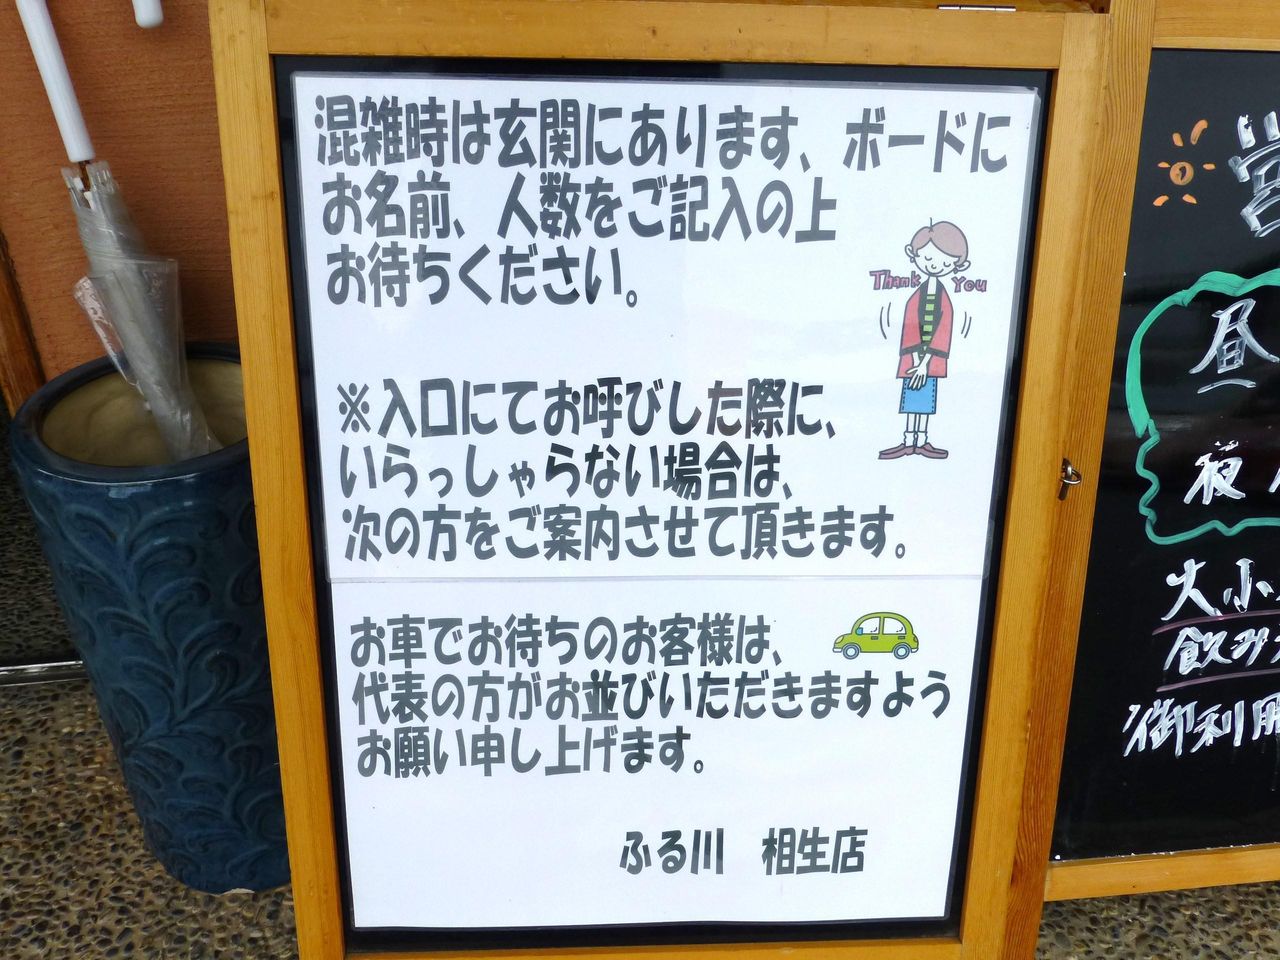 混雑時は玄関にあります、ボードに
お名前、人数をご記入の上
お待ちください。
Thank You
※入口にてお呼びした際に、
いらっしゃらない場合は、
次の方をご案内させて頂きます。
お車でお待ちのお客様は、
代表の方がお並びいただきますよう
お願い申し上げます。
ふる川 相生店
営
昼
夜
大小
飲み
御利用